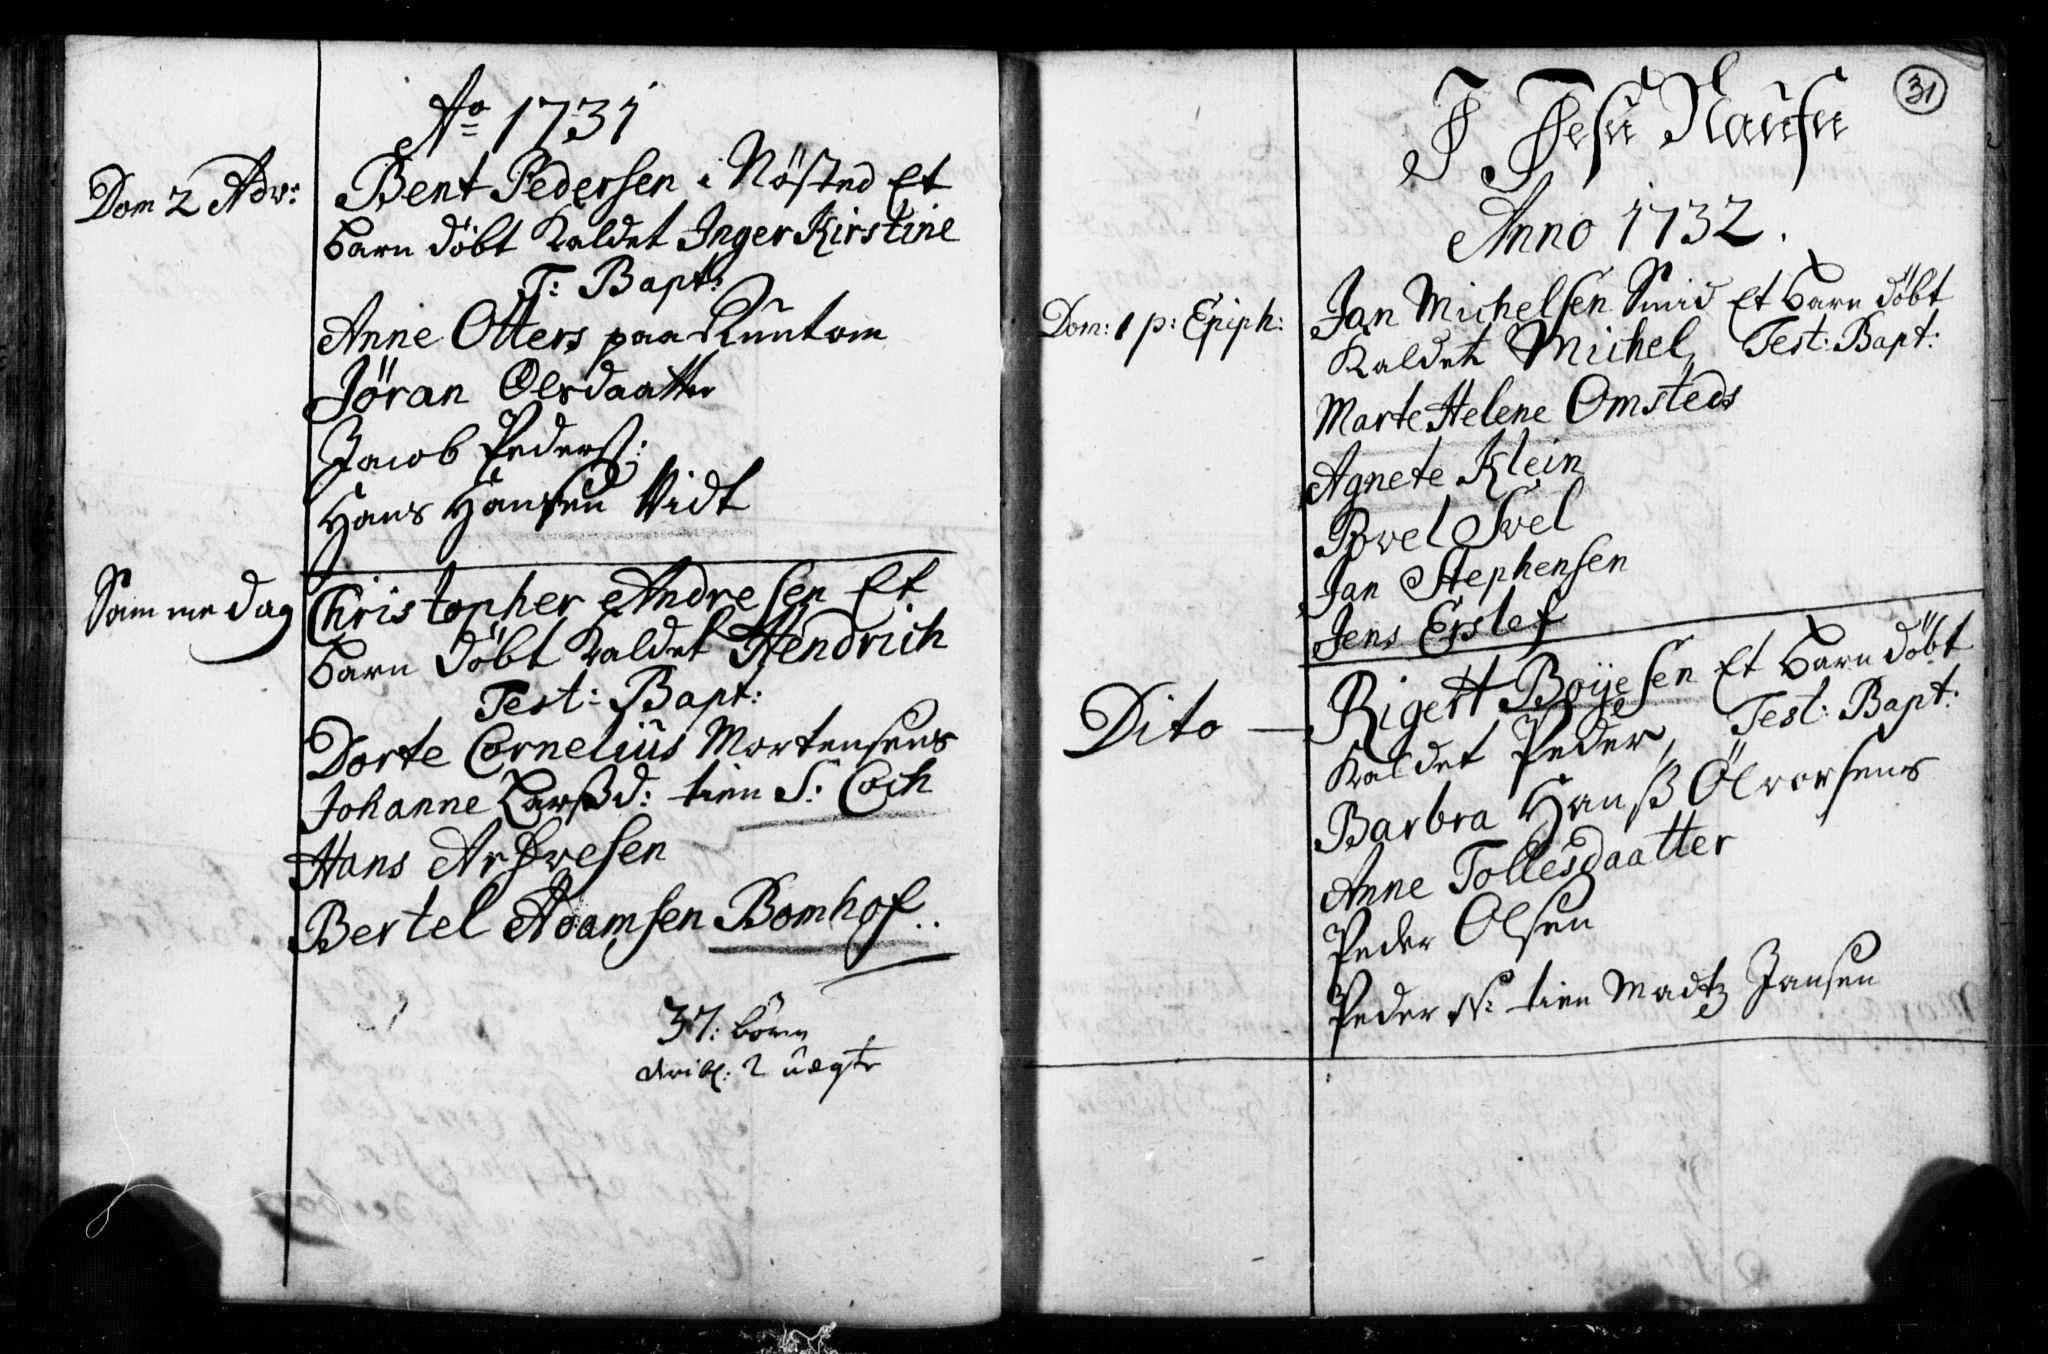 Ao 1731
Dom 2 Adv: Bent Pedersen i Nösted Et
barn döbt kaldet Inger Kirstine
T: Bapt:
Anne Otters paa
Jöran Olsdaatter
Jacob Peders:
Hans Hansen Vidt
Samme dag Christopher Andresen Et
barn döbt kaldet Hendrich
Test: Bapt:
Dorte Cornelius Mortensens
Johanne Larsd: tien S: Coch
Hans Arfvesen
Bertel Adamsen Bomhof..
37: börn
2 uægte
31
I Jesu Nafn
Anno 1732.
Dom: 1 p: Epiph: Jan Michelsen Smid Et barn döbt
kaldet Michel, Test: Bapt:
Marte Helene Omsteds
Agnete Klein
Povel Juel
Jan Stephensen
Jens Erslef
Dito — Rigert Boijesen Et barn döbt
kaldet Peder, Test: Bapt:
Barbra Hanß Olvorsens
Anne Tollesdaatter
Peder Olsen
Peder N: tien Madtz Jansen